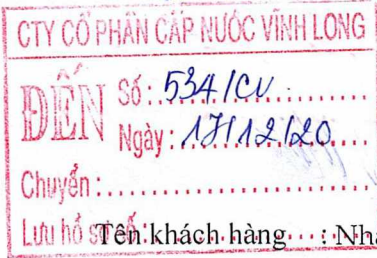 CTY CỔ PHẦN CẤP NƯỚC VĨNH LONG
ĐẾN
Số: 534/CV
Ngày: 17/12/20
Chuyển:
Lưu hồ sơ số:
Tên khách hàng : Nhà